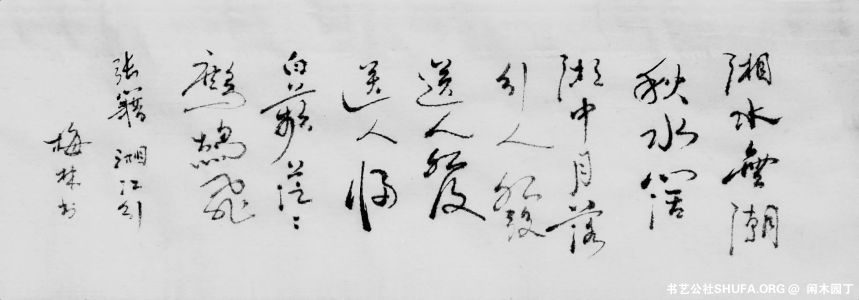 湘水無潮
秋水阔
湘中月落
行人發
送人發
送人歸
白蘋茫〻
鷓鴣飛
張籍 湘江
梅林书
书艺公社SHUFA.ORG @ 闲木园丁